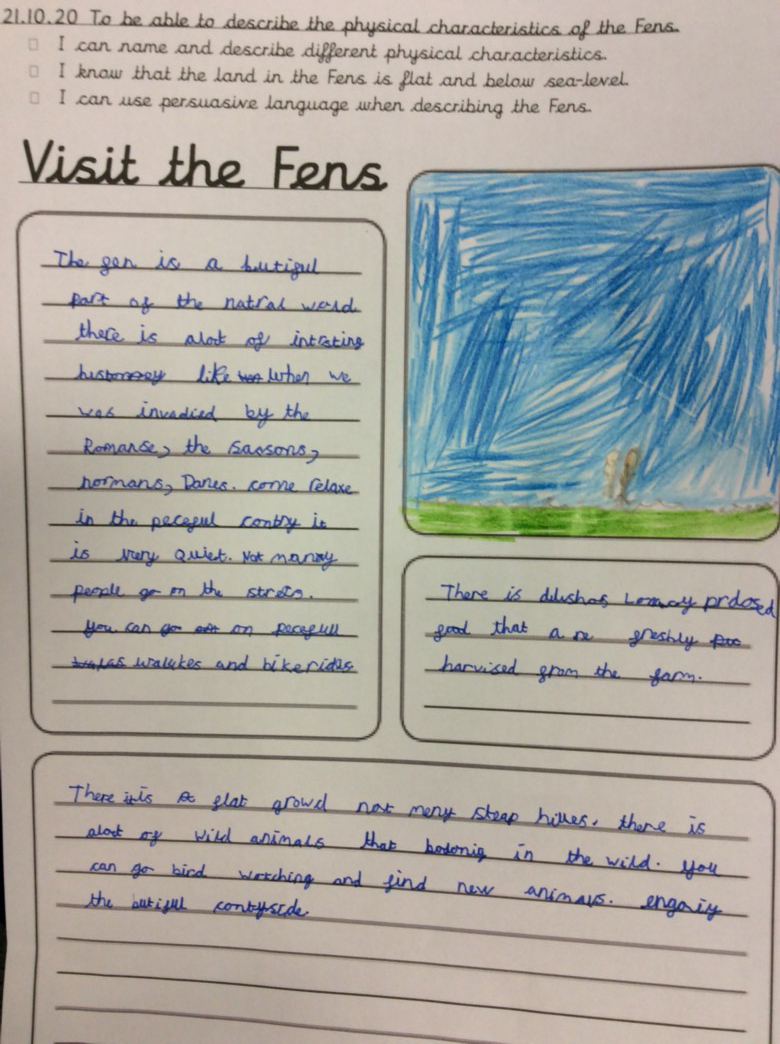 21.10.20 To be able to describe the physical characteristics of the Fens.
I can name and describe different physical characteristics.
I know that the land in the Fens is flat and below sea-level.
I can use persuasive language when describing the Fens.
Visit the Fens
The fen is a butiful
part of the natral world
there is alot of intrsting
like when we
was invadied by the
Romanse, the saxsons,
normans, Danes. come relaxe
in the peceful contry it
is very quiet. Not many
people go on the strets.
you can go on pecefull
walukes and bike rides
There is dilushos prdosed
food that are freshly
harvised from the farm.
There is a flat growd not meny steap hilles. there is
alot of wild animals that in the wild. you
can go bird wotching and find new animals. engaiy
the butiful contyside.